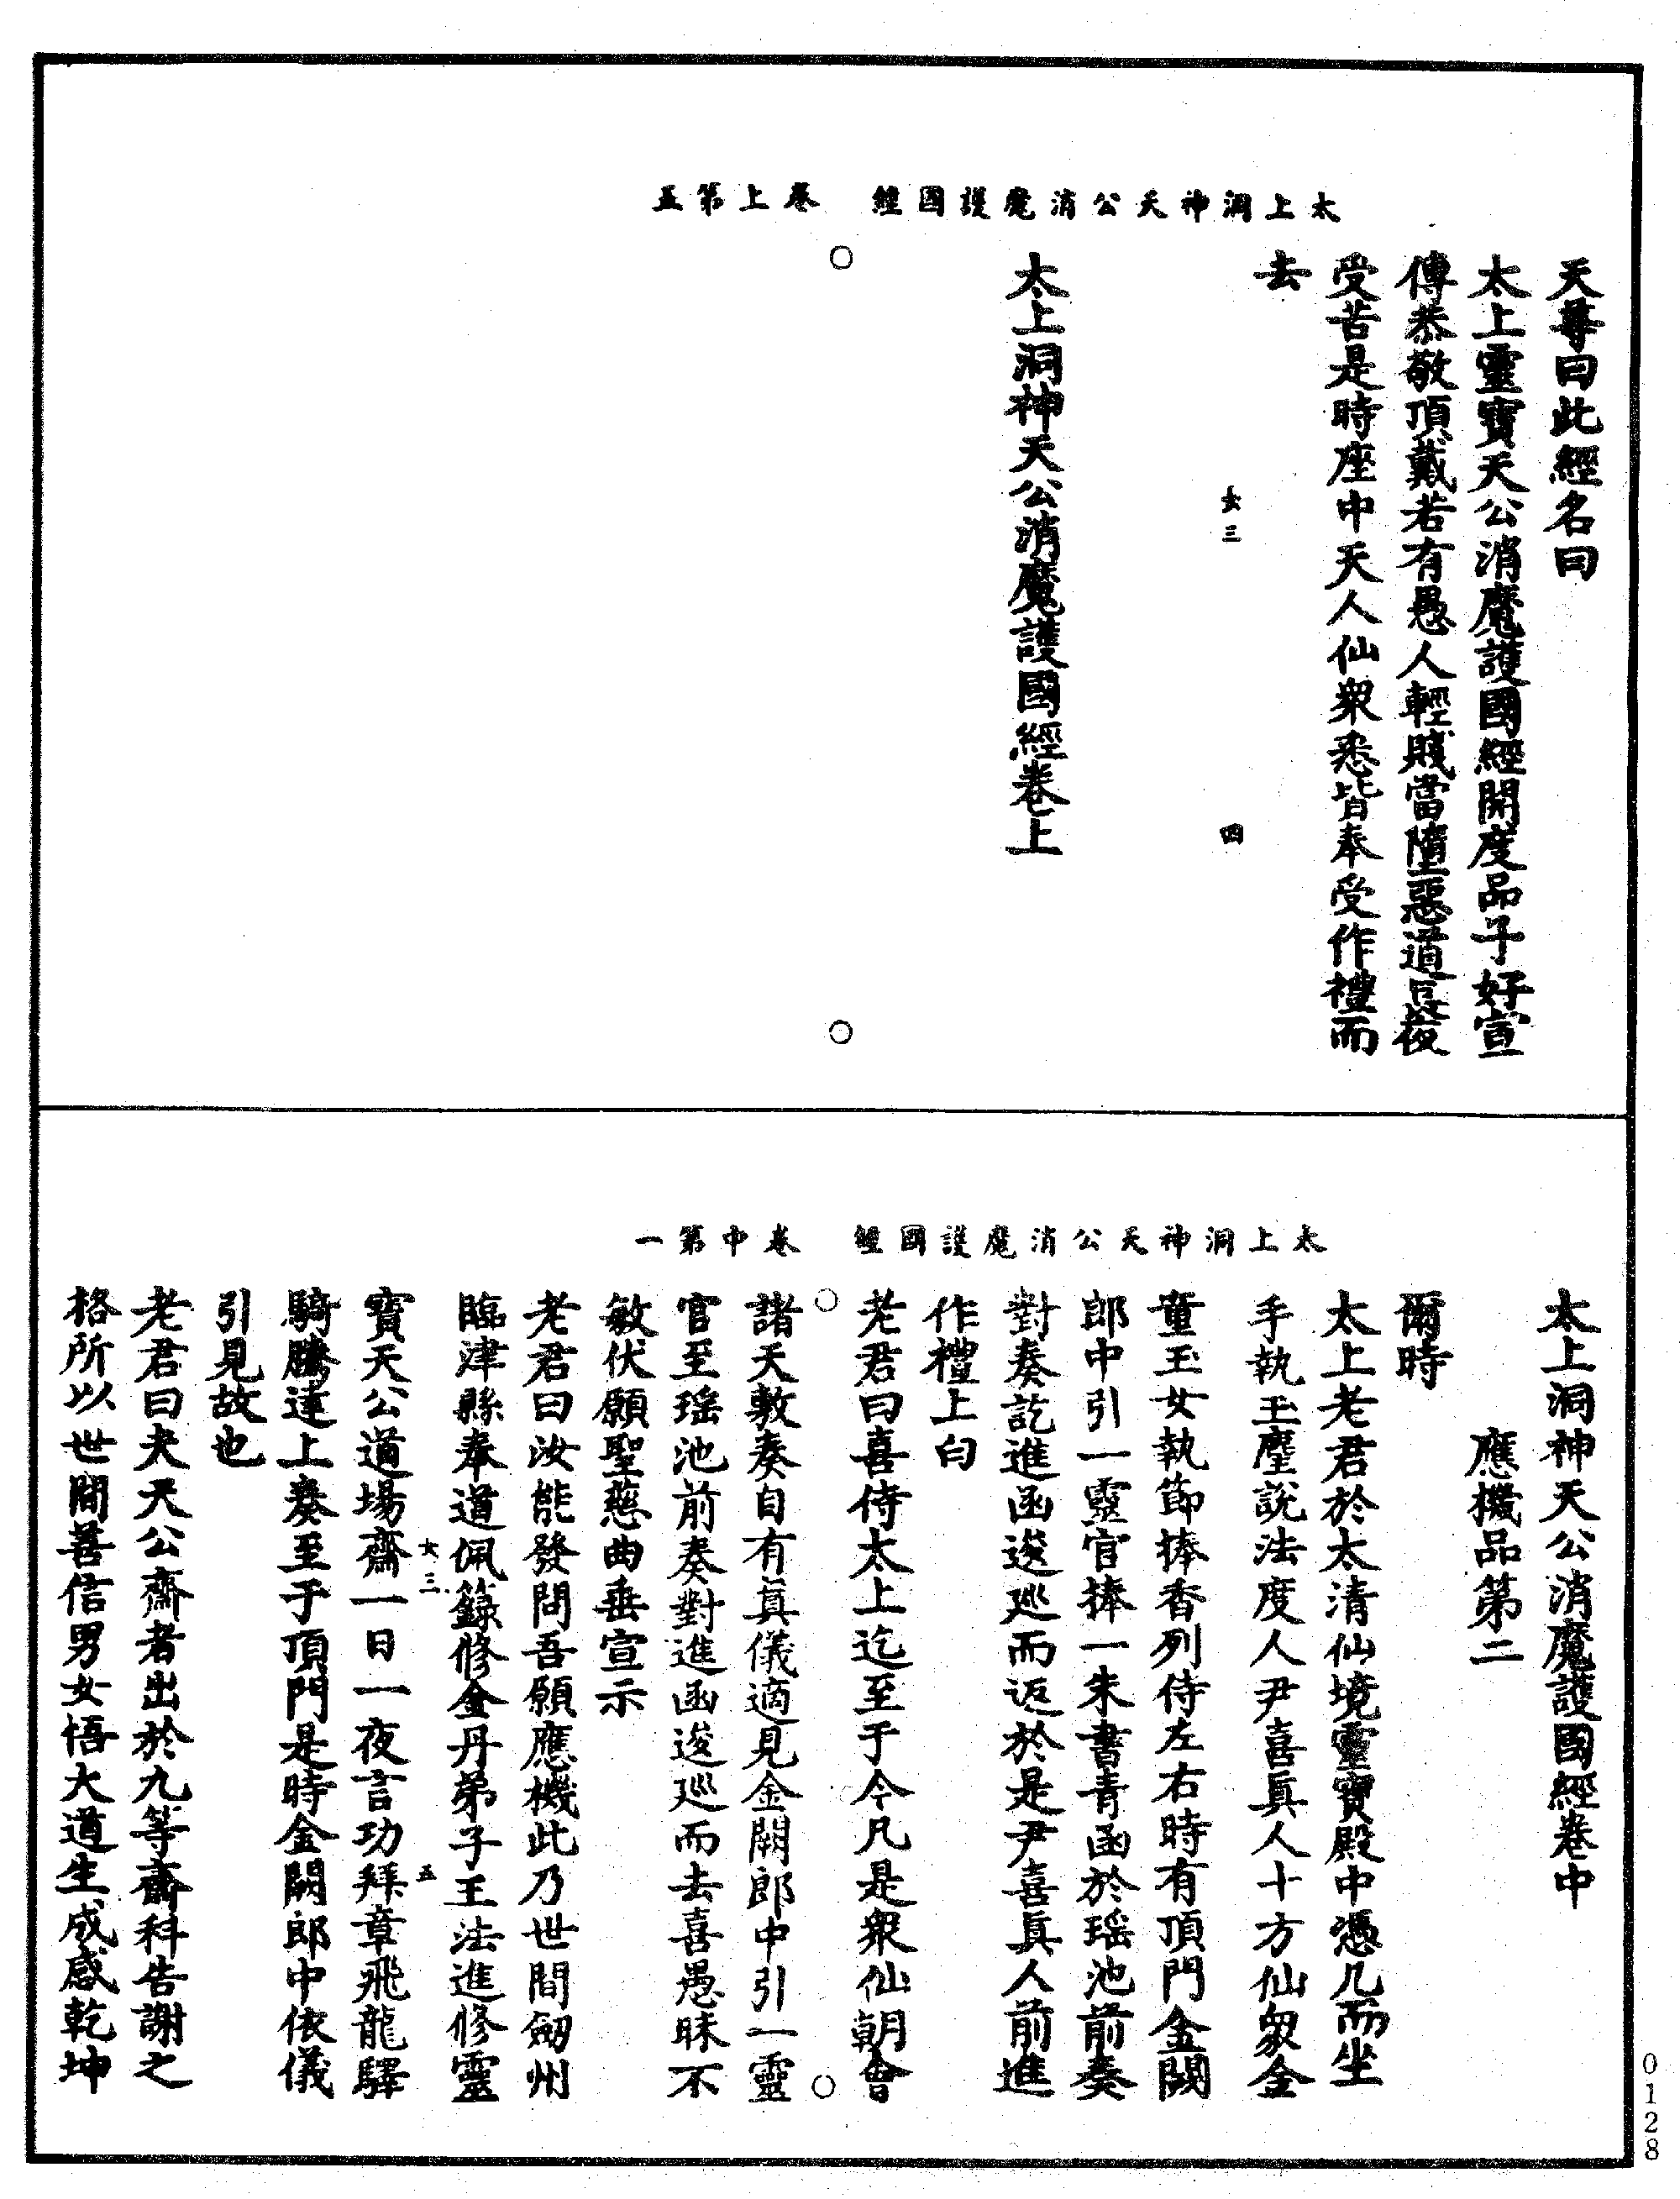 太上洞神天公消魔護國經　卷上第五
天尊曰此經名曰
太上靈寶天公消魔護國經開度品子好宣
傳恭敬頂戴若有愚人輕賤當墮惡道長夜
受苦是時座中天人仙衆悉皆奉受作禮而
去
女三　四
太上洞神天公消魔護國經卷上
太上洞神天公消魔護國經　卷中第一
太上洞神天公消魔護國經卷中
應機品第二
爾時
太上老君於太清仙境靈寶殿中憑几而坐
手執玉麈說法度人尹喜眞人十方仙衆金
童玉女執節捧香列侍左右時有頂門金闕
郎中引一靈官捧一朱書青函於瑶池前奏
對奏訖進函逡廵而返於是尹喜眞人前進
作禮上白
老君曰喜侍太上迄至于今凡是衆仙朝會
諸天敷奏自有眞儀適見金闕郎中引一靈
官至瑶池前奏對進函逡廵而去喜愚昧不
敏伏願聖慈曲垂宣示
老君曰汝能發問吾願應機此乃世間劒州
臨津縣奉道佩籙修金丹弟子王法進修靈
女三　五
寶天公道場齋一日一夜言功拜章飛龍驛
騎騰達上奏至于頂門是時金闕郎中依儀
引見故也
老君曰夫天公齋者出於九等齋科告謝之
格所以世間善信男女悟大道生成感乾坤
0128